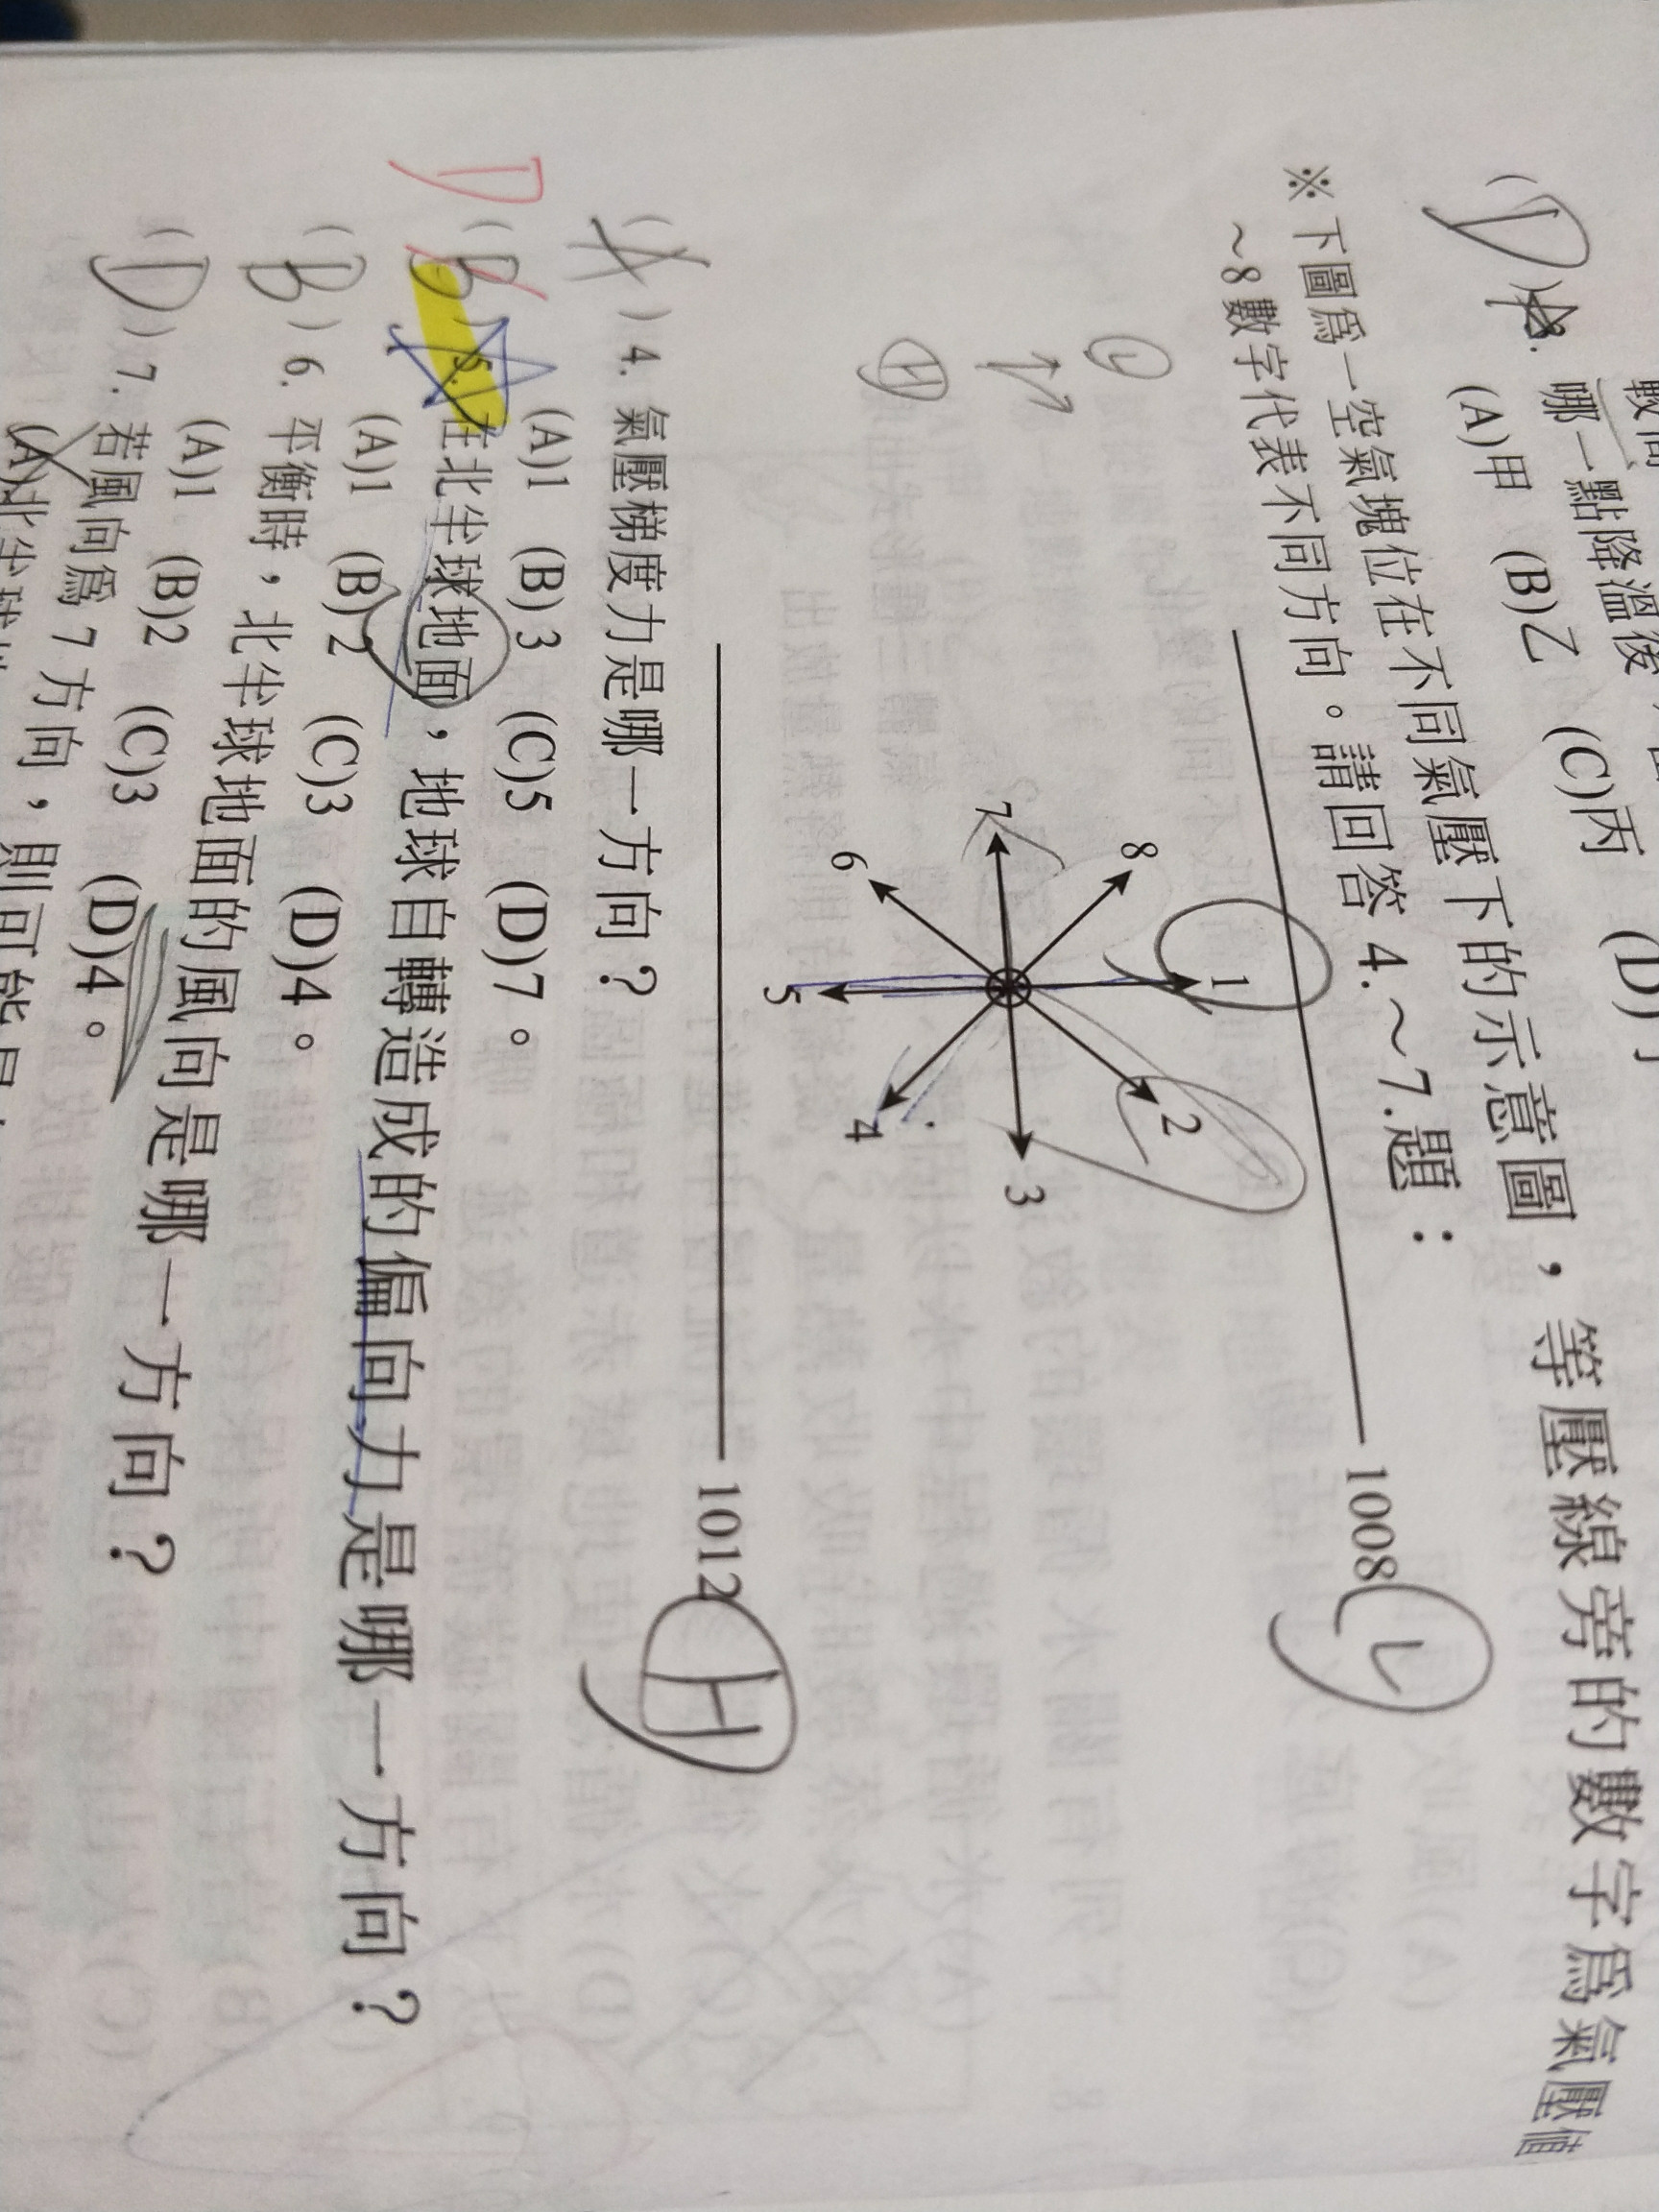 (D)3. 哪一點降溫後
(A)甲 (B)乙 (C)丙 (D)丁
※下圖爲一空氣塊位在不同氣壓下的示意圖，等壓線旁的數字爲氣壓值
～8數字代表不同方向。請回答4.～7.題：
1008 L
1
8 2
7 3
6 4
5
1012 H
(A)4. 氣壓梯度力是哪一方向？
(A)1 (B)3 (C)5 (D)7。
D (B)5. 在北半球地面，地球自轉造成的偏向力是哪一方向？
(A)1 (B)2 (C)3 (D)4。
(B)6. 平衡時，北半球地面的風向是哪一方向？
(A)1 (B)2 (C)3 (D)4。
(D)7. 若風向爲7方向，則可能是
(A)北半球